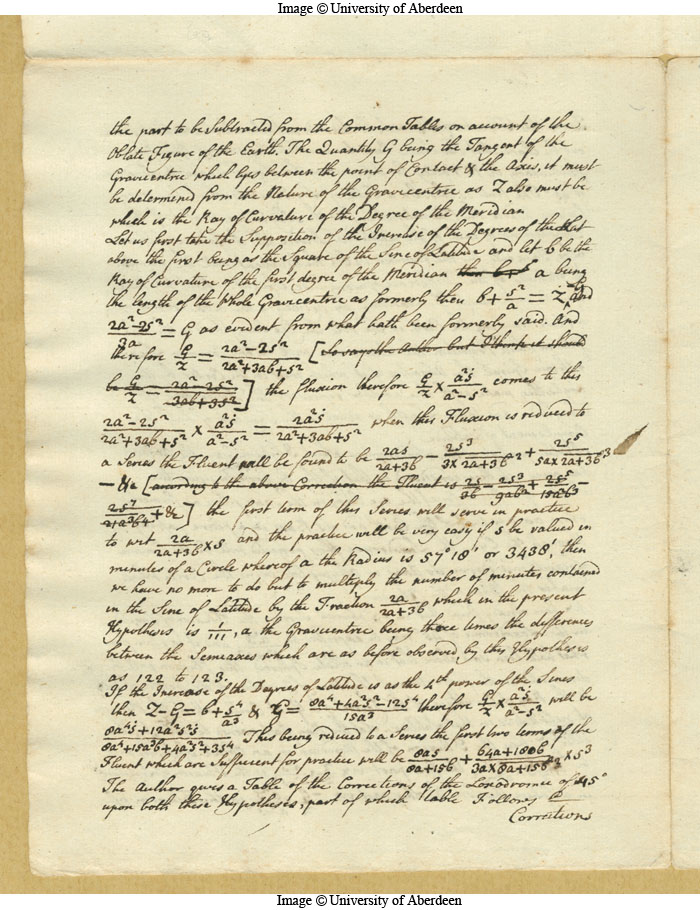 Image © University of Aberdeen
the part to be Subtracted from the Common Tables on account of the
Oblate Figure of the Earth. The Quantity G being the Tangent of the
Gravicentric which lyes between the point of Contact & the Axis, it must
be determined from the Nature of the Gravicentric as Z also must be
which is the Ray of Curvature of the Degree of the Meridian
Let us first take the Supposition of the Increase of the Degrees of the
above the first being as the Square of the Sine of Latitude and let b be the
Ray of Curvature of the first degree of the Meridian then b + a being
the length of the Whole Gravicentric as formerly then b + s²/a = Z and
2a²-2s²/3a = G as evident from what hath been formerly said. And
therefore G/Z = 2a²-2s²/2a²+3ab+s² [So says the Author but I think it should
be G/Z = 2a²-2s²/3ab+3s²] the fluxion therefore G/Z × a²ṡ/a²-s² comes to this
2a²-2s²/2a²+3ab+s² × a²ṡ/a²-s² = 2a²ṡ/2a²+3ab+s² when this Fluxion is reduced to
a Series the Fluent will be found to be 2as/2a+3b - 2s³/3×2a+3b² + 2s⁵/5a×2a+3b³
- &c [according to the above Correction the Fluent is 2s/3b - 2s³/9ab² + 2s⁵/15a²b³ -
2s⁷/21a³b⁴ + &c] the first term of this Series will serve in practice
to wit 2a/2a+3b × s and the practice will be very easy if s be valued in
minutes of a Circle whereof a the Radius is 57° 18' or 3438', then
we have no more to do but to multiply the number of minutes contained
in the Sine of Latitude by the Fraction 2a/2a+3b which in the present
Hypothesis is 1/111, a the Gravicentric being three times the difference
between the Semiaxes which are as before observed by this Hypothesis
as 122 to 123.
If the Increase of the Degrees of Latitude is as the 4th power of the Sines
then Z - G = b + s⁴/a³ & G = 8a⁴+4a²s²-12s⁴/15a³ therefore G/Z × a²ṡ/a²-s² will be
8a⁴ṡ+12a²s²ṡ/8a⁴+15a³b+4a²s²+3s⁴ This being reduced to a Series the first two terms of the
Fluent which are Sufficent for practice will be 8as/8a+15b + 64a+180b/3a×8a+15b² × s³
The Author gives a Table of the Corrections of the Loxodromic of 45°
upon both these Hypotheses, part of which Table Follows
Corrections
Image © University of Aberdeen